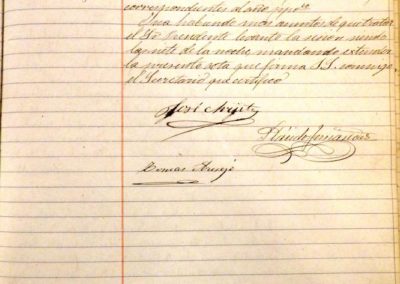 correspondientes al año ppdo.
Y no habiendo mas asuntos de que tratar
el Sr Presidente levantó la sesion siendo
las nueve de la noche mandando extender
la presente acta que firma S.S. conmigo
el Secretario que certifico
José
Tomás Araujo